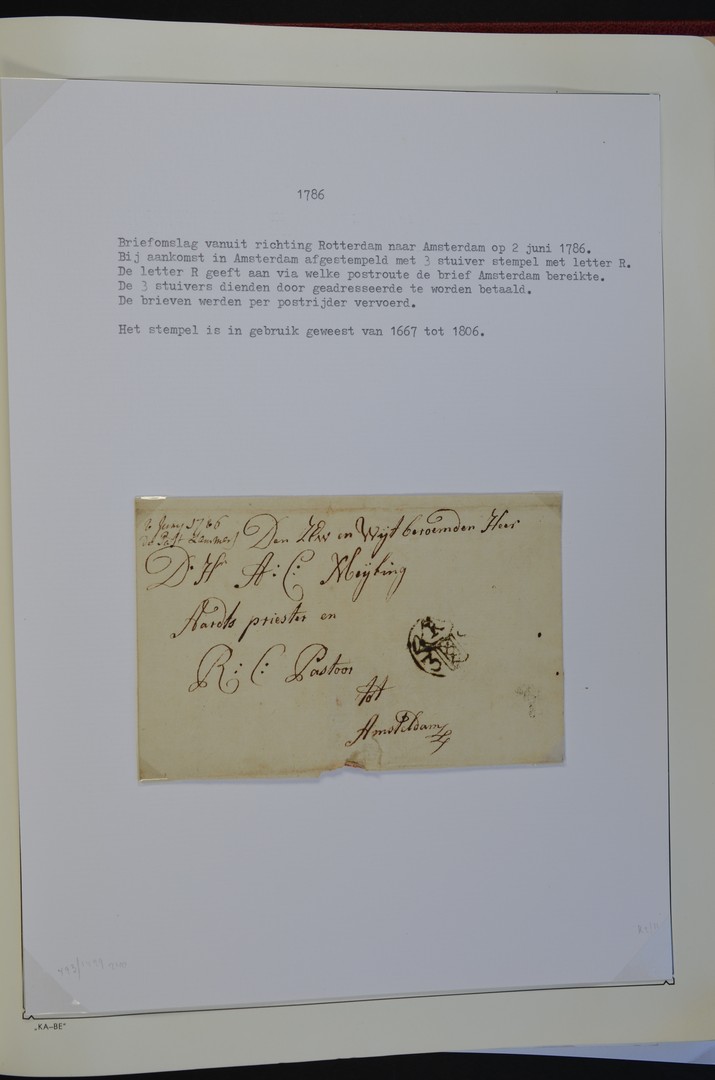 1786
Briefomslag vanuit richting Rotterdam naar Amsterdam op 2 juni 1786.
Bij aankomst in Amsterdam afgestempeld met 3 stuiver stempel met letter R.
De letter R geeft aan via welke postroute de brief Amsterdam bereikte.
De 3 stuivers dienden door geadresseerde te worden betaald.
De brieven werden per postrijder vervoerd.
Het stempel is in gebruik geweest van 1667 tot 1806.
2 Juny 1786
Den en Wijt beroemden Heer
Dr Hr A: C: Meijking
Aards priester en
R: C: Pastoor
3 R
tot
Amsteldam
„KA-BE"